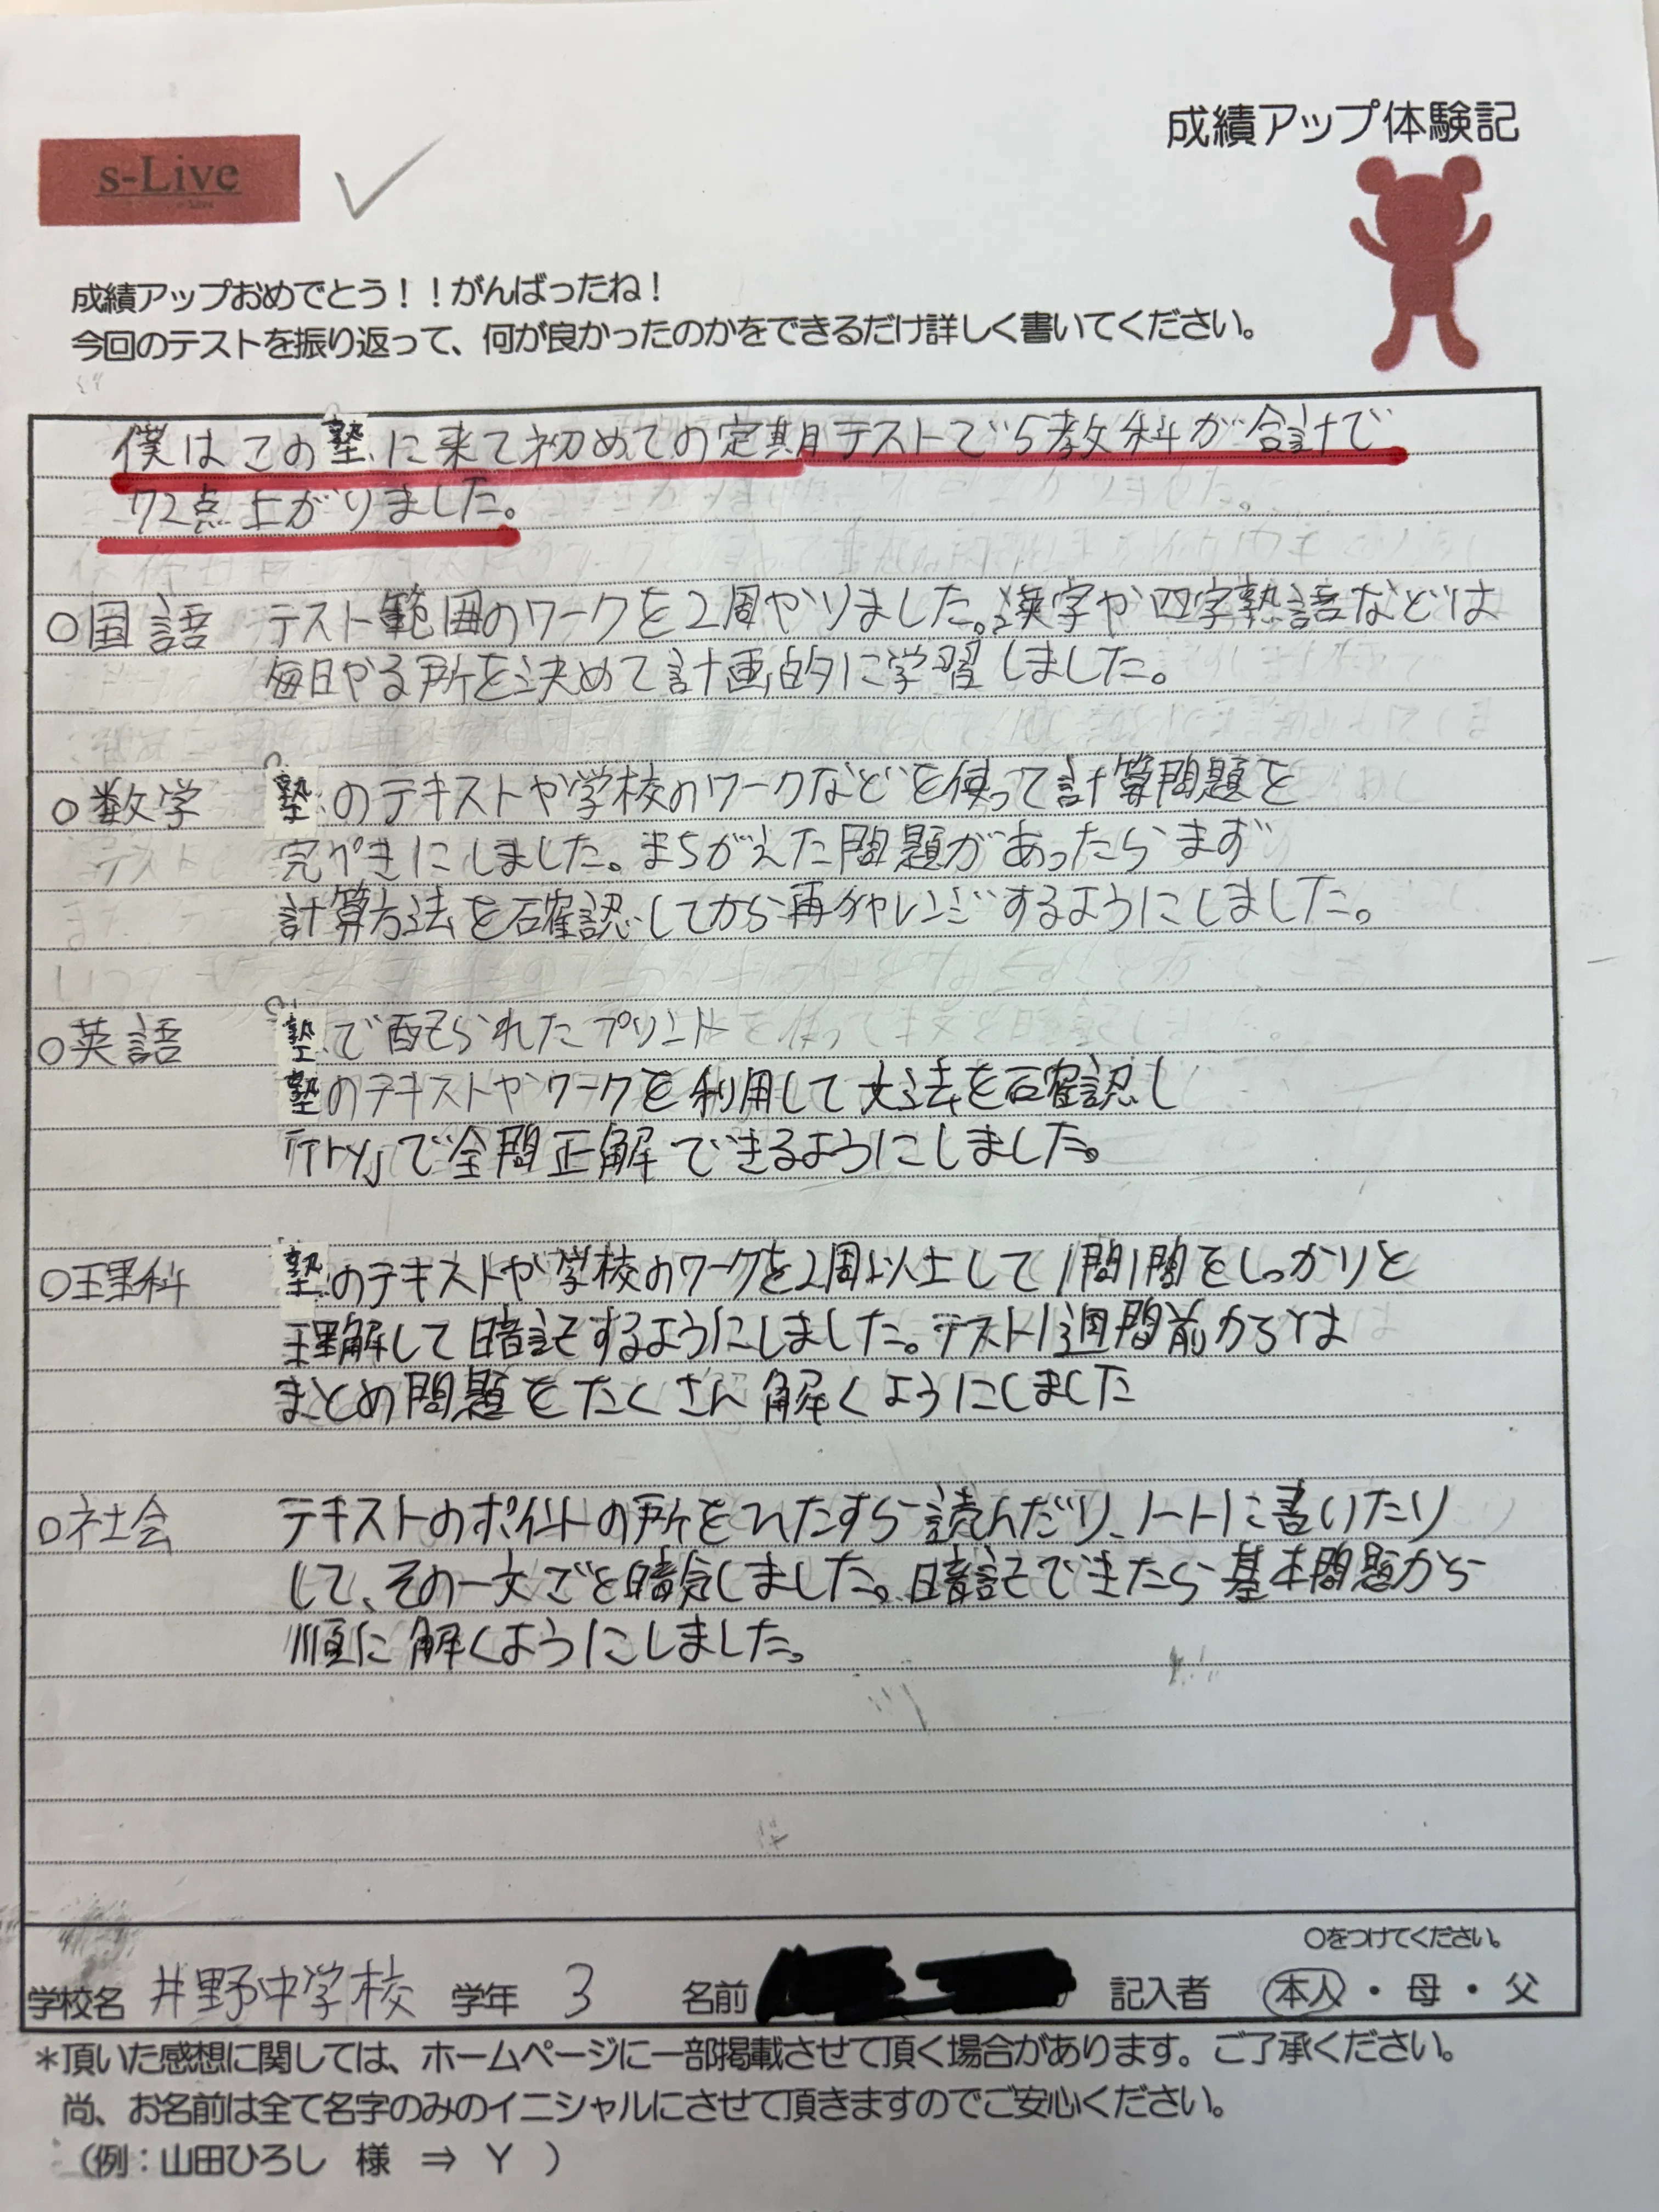 成績アップ体験記
s-Live
成績アップおめでとう！！がんばったね！
今回のテストを振り返って、何が良かったのかをできるだけ詳しく書いてください。
僕はこの塾に来て初めての定期テストで5教科が合計で
72点上がりました。
○国語 テスト範囲のワークを2周やりました。漢字や四字熟語などは
毎日やる所を決めて計画的に学習しました。
○数学 塾のテキストや学校のワークなどを使って計算問題を
完ぺきにしました。まちがえた問題があったらまず
計算方法を確認してから再チャレンジするようにしました。
○英語 塾で配られたプリントや
塾のテキストやワークを利用して文法を確認し
「Try」で全問正解できるようにしました。
○理科 塾のテキストや学校のワークを2周以上して1問1問をしっかりと
理解して暗記するようにしました。テスト1週間前からは
まとめ問題をたくさん解くようにしました
○社会 テキストのポイントの所をひたすら読んだり、ノートに書いたり
して、その一文ごと暗記しました。暗記できたら基本問題から
順に解くようにしました。
○をつけてください。
学校名 井野中学校 学年 3 名前 記入者 本人・母・父
＊頂いた感想に関しては、ホームページに一部掲載させて頂く場合があります。ご了承ください。
尚、お名前は全て名字のみのイニシャルにさせて頂きますのでご安心ください。
（例：山田ひろし 様 ⇒ Y ）